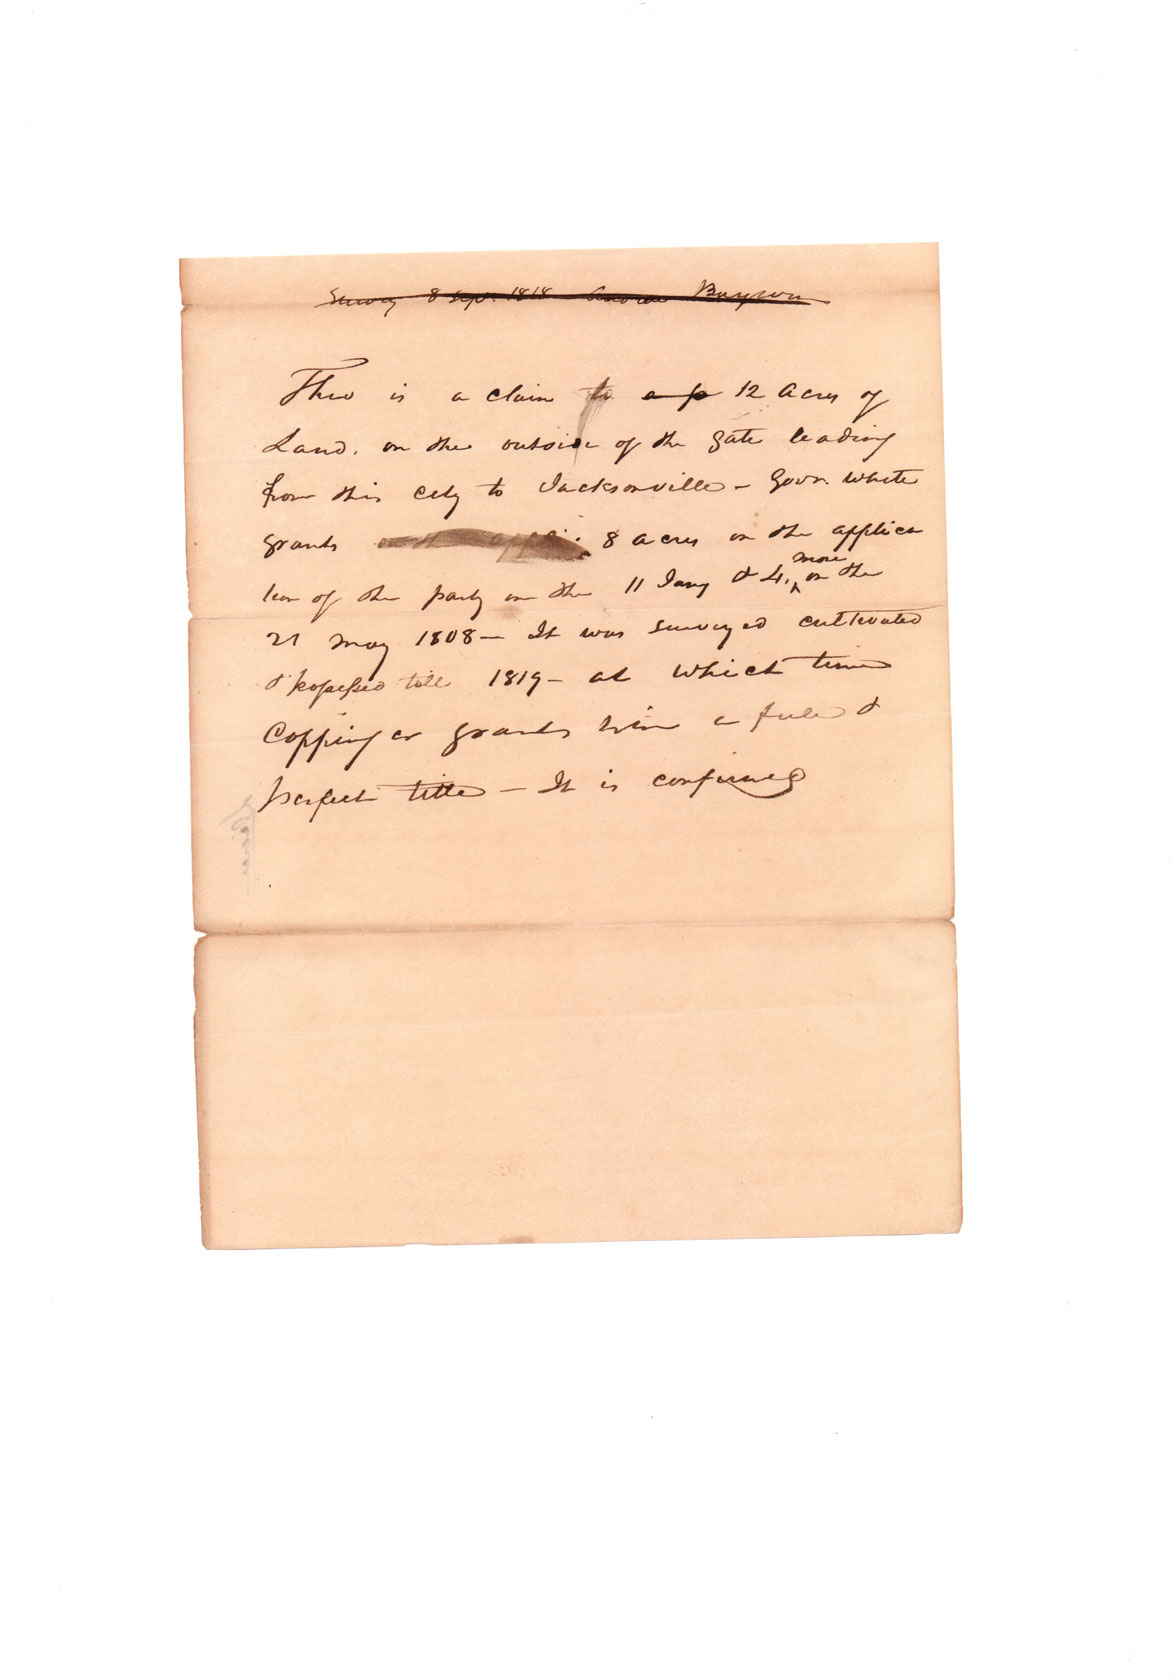 Survey 8 Sep. 1818 Andrew Burgevin
This is a claim to a p 12 Acres of
Land. on the outside of the gate leading
from this city to Jacksonville – Govr. White
grants on the appli 8 acres on the applica
tion of the party on the 11 Jany & 4, more on the
21 May 1808 – It was surveyed cultivated
& possessed till 1819 – at which time
Coppinger grants him a full &
perfect title – It is confirmed